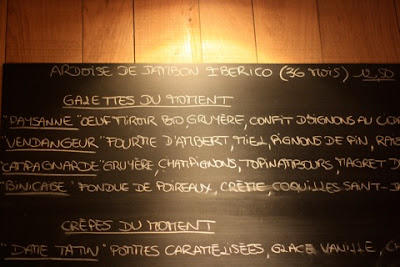 ARDOISE DE JAMBON IBERICO (36 MOIS) 12,50
GALETTES DU MOMENT
"PAYSANNE" OEUF MIROIR BIO GRUYÈRE, CONFIT D'OIGNONS AU
"VENDANGEUR" FOURME D'AMBERT, MIEL, PIGNONS DE PIN,
"CAMPAGNARDE" GRUYÈRE, CHAMPIGNONS, TOPINAMBOURS, MAGRET
"BINICAISE" FONDUE DE POIREAUX, CRÈME, COQUILLES SAINT-
CRÊPES DU MOMENT
"DAME TATIN" POMMES CARAMÉLISÉES, GLACE VANILLE,